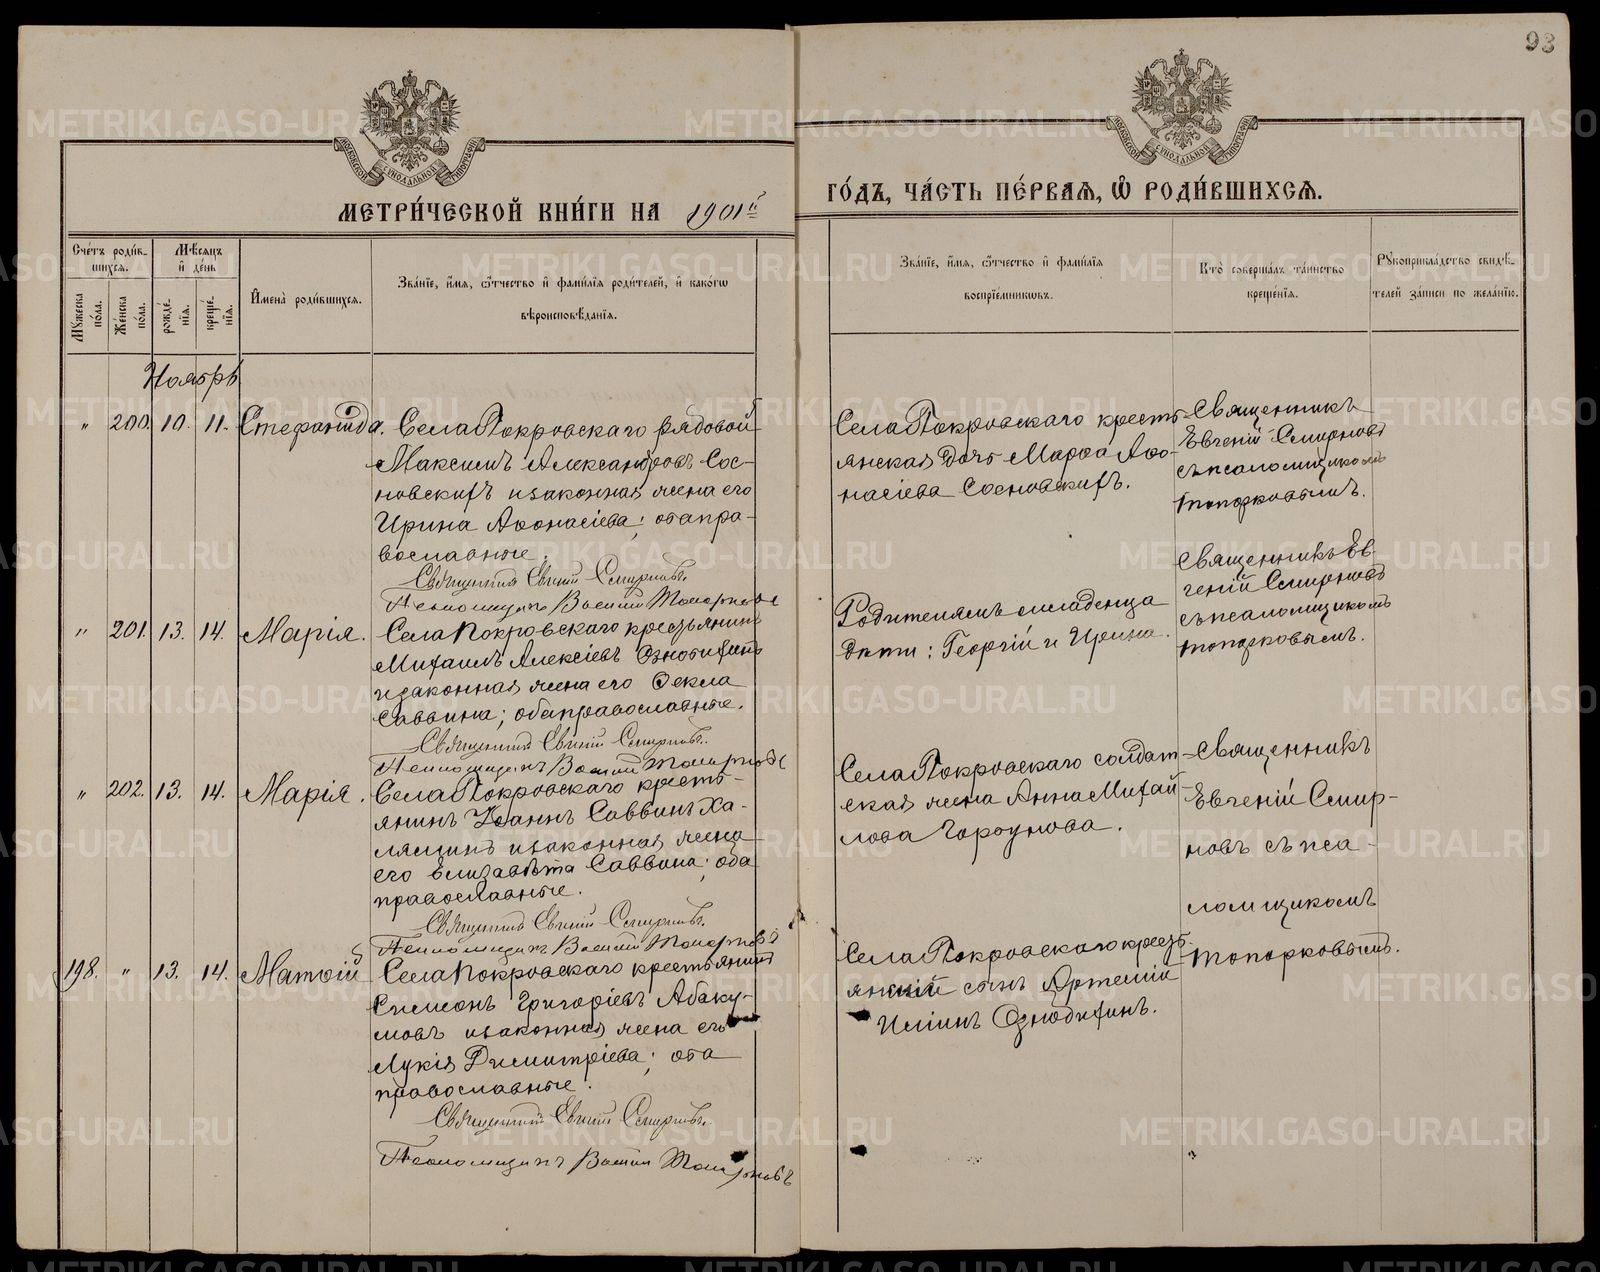 93
МОСКОВСКОЙ СѴНОДАЛЬНОЙ ТИПОГРАФІИ
МОСКОВСКОЙ СѴНОДАЛЬНОЙ ТИПОГРАФІИ
МЕТРИ́ЧЕСКОЙ КНИ́ГИ НА 1901й
ГО́ДЪ, ЧА́СТЬ ПЕ́РВАѦ, Ѡ҆ РОДИ́ВШИХСѦ.
Сче́тъ роди́в-
шихся.
Мѣ́сяцъ
и҆ де́нь
Мꙋ́жеска
по́ла.
Же́нска
по́ла.
рожде́-
нїя.
креще́-
нїя.
И҆мена̀ роди́вшихся.
Зва́нїе, и҆́мя, ѻ҆́тчество и҆ фами́лїя роди́телей, и҆ како́гѡ
вѣроисповѣ́данїя.
Зва́нїе, и҆́мя, ѻ҆́тчество и҆ фами́лїя
воспрїе́мникѡвъ.
Кто̀ соверша́лъ та́инство
креще́нїя.
Рꙋкоприкла́дство свидѣ́-
телей за́писи по жела́нїю.
Ноябрь
" 200. 10. 11. Стефанида. Села Покровскаго рядовой
Максимъ Александровъ Сос-
новскихъ и законная жена его
Ирина Аѳонасіева; оба пра-
вославные.
Священникъ Евгеній Смирновъ.
Псаломщикъ Василій Топорковъ
Села Покровскаго кресть-
янская дочь Марѳа Аѳо-
насіева Сосновскихъ.
Священникъ
Евгеній Смирновъ
съ псаломщикомъ
Топорковымъ.
" 201. 13. 14. Марія. Села Покровскаго крестьянинъ
Михаилъ Алексіевъ Ознобихинъ
и законная жена его Ѳекла
Саввина; оба православные.
Священникъ Евгеній Смирновъ.
Псаломщикъ Василій Топорковъ
Родителямъ младенца
дѣти: Георгій и Ирина.
Священникъ Ев-
геній Смирновъ
съ псаломщикомъ
Топорковымъ.
" 202. 13. 14. Марія. Села Покровскаго кресть-
янинъ Іоаннъ Саввинъ Ха-
ляминъ и законная жена
его Елизавѣта Саввина; оба
православные.
Священникъ Евгеній Смирновъ.
Псаломщикъ Василій Топорковъ
Села Покровскаго солдат-
ская жена Анна Михай-
лова Горбунова.
Священникъ
Евгеній Смир-
новъ съ пса-
ломщикомъ
Топорковымъ.
198. " 13. 14. Матѳій Села Покровскаго крестьянинъ
Симеонъ Григоріевъ Абаку-
мовъ и законная жена его
Лукія Димитріева; оба
православные.
Священникъ Евгеній Смирновъ.
Псаломщикъ Василій Топорковъ
Села Покровскаго кресть-
янскій сынъ Артемій
Ознобихинъ.
METRIKI.GASO-URAL.RU